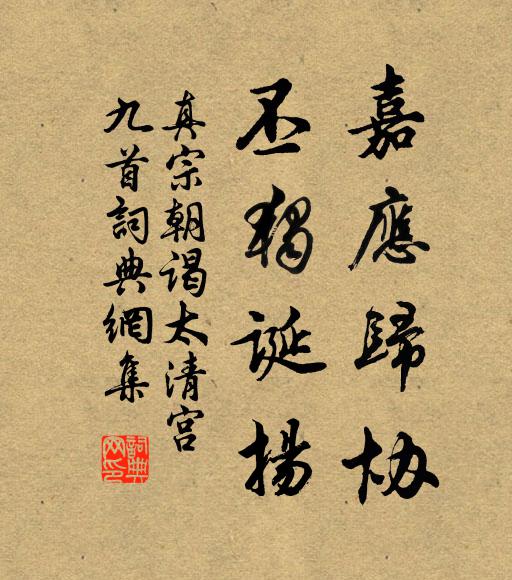 嘉應歸協
丕獨誕揚
真宗朝謁太清宮
九首詞典網集
詞典網印